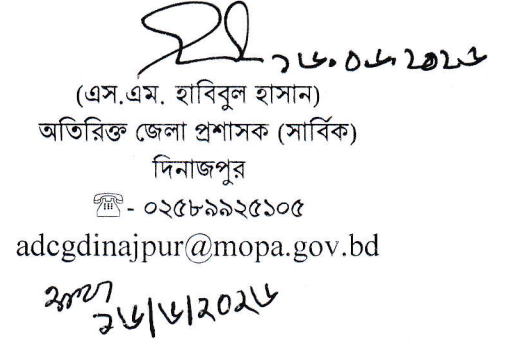 ১৬.০৬.২০২৬
(এস.এম. হাবিবুল হাসান)
অতিরিক্ত জেলা প্রশাসক (সার্বিক)
দিনাজপুর
☎ - ০২৫৮৯৯২৫১০৫
adcgdinajpur@mopa.gov.bd
১৬/৬/২০২৬